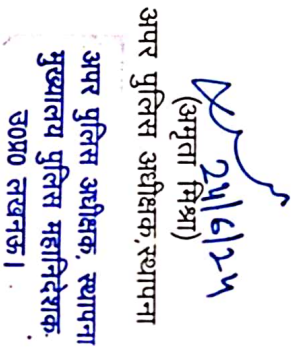 24/6/24
(अमृता मिश्रा)
अपर पुलिस अधीक्षक,स्थापना
अपर पुलिस अधीक्षक, स्थापना
मुख्यालय पुलिस महानिदेशक
उ0प्र0 लखनऊ।